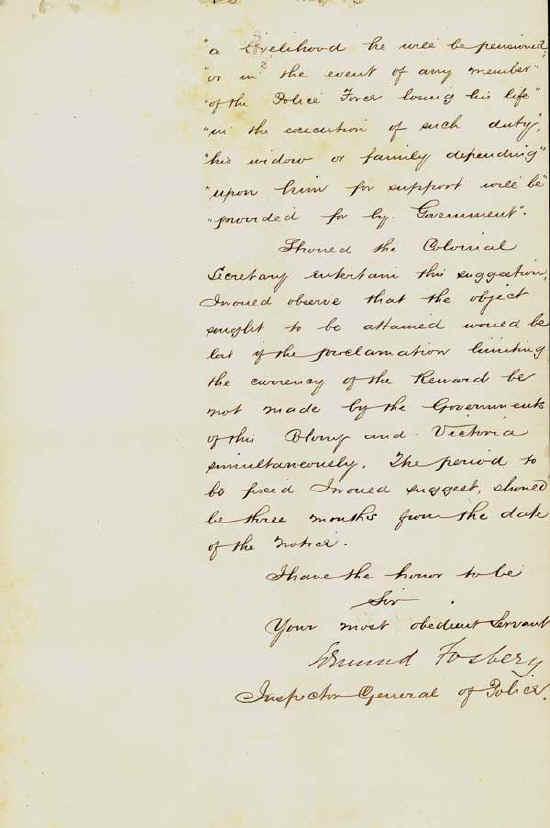 "a livelihood he will be pensioned,
"or in the event of any member"
"of the Police Force losing his life"
"in the execution of such duty,"
"his widow or family depending"
"upon him for support will be"
"provided for by Government".
Should the Colonial
Secretary entertain this suggestion,
I would observe that the object
sought to be attained would be
lost if the proclamation limiting
the currency of the Reward be
not made by the Governments
of this Colony and Victoria
simultaneously. The period to
be fixed I would suggest, should
be three months from the date
of the Notice.
I have the honor to be
Sir
Your most obedient Servant
Edmund Fosbery
Inspector General of Police.